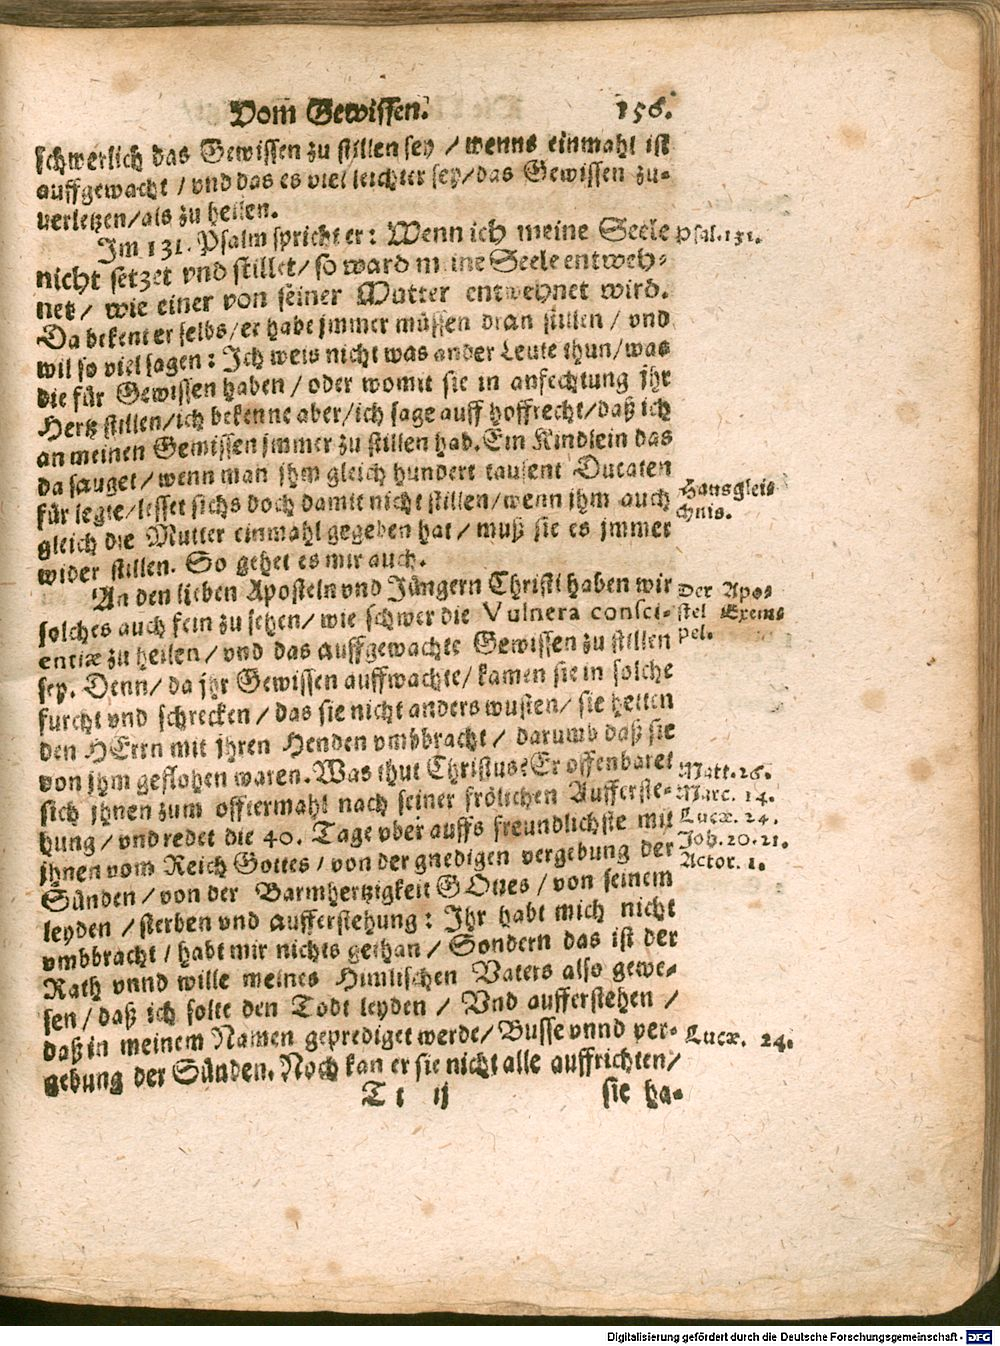 Vom Gewissen. 156.
schwerlich das Gewissen zu stillen sey / wenns einmahl ist
auffgewacht / vnd das es viel leichter sey/das Gewissen zu-
verletzen/als zu heilen.
Im 131. Psalm spricht er: Wenn ich meine Seele
Psal. 131.
nicht setzet vnd stillet/ so ward meine Seele entweh-
net/ wie einer von seiner Mutter entwehnet wird.
Da bekent er selbs/er habe jmmer müssen dran stillen / vnd
wil so viel sagen: Ich weis nicht was ander Leute thun/was
die für Gewissen haben / oder womit sie in anfechtung jhr
Hertz stillen/ich bekenne aber/ich sage auff hoffrecht/daß ich
an meinen Gewissen jmmer zu stillen hab. Ein Kindlein das
da sauget/wenn man jhm gleich hundert tausent Ducaten
für legte/lesset sichs doch damit nicht stillen/wenn jhm auch
Hausgleis
chnis.
gleich die Mutter einmahl gegeben hat/ muß sie es jmmer
wider stillen. So gehet es mir auch.
An den lieben Aposteln vnd Jüngern Christi haben wir
Der Apos-
solches auch fein zu sehen/ wie schwer die Vulnera consci-
stel Exem-
entiæ zu heilen/ vnd das auffgewachte Gewissen zu stillen
pel.
sey. Denn/ da jhr Gewissen auffwachte/ kamen sie in solche
furcht vnd schrecken / das sie nicht anders wusten/ sie hetten
den HErrn mit jhren Henden vmbbracht/ darumb daß sie
von jhm geflohen waren. Was thut Christus? Er offenbaret
Matt. 26.
sich jhnen zum offtermahl nach seiner frölichen Aufferste-
Marc. 14.
hung/ vnd redet die 40. Tage vber auffs freundlichste mit
Lucæ. 24.
jhnen vom Reich Gottes/ von der gnedigen vergebung der
Joh. 20. 21.
Actor. 1.
Sünden / von der Barmhertzigkeit GOttes / von seinem
leyden / sterben vnd aufferstehung: Ihr habt mich nicht
vmbbracht / habt mir nichts gethan/ Sondern das ist der
Rath vnnd wille meines Himlischen Vaters also gewe-
sen/ daß ich solte den Todt leyden / Vnd aufferstehen /
daß in meinem Namen geprediget werde/ Busse vnnd ver-
Lucæ. 24.
gebung der Sünden. Noch kan er sie nicht alle auffrichten/
T t ij sie ha-
Digitalisierung gefördert durch die Deutsche Forschungsgemeinschaft - DFG